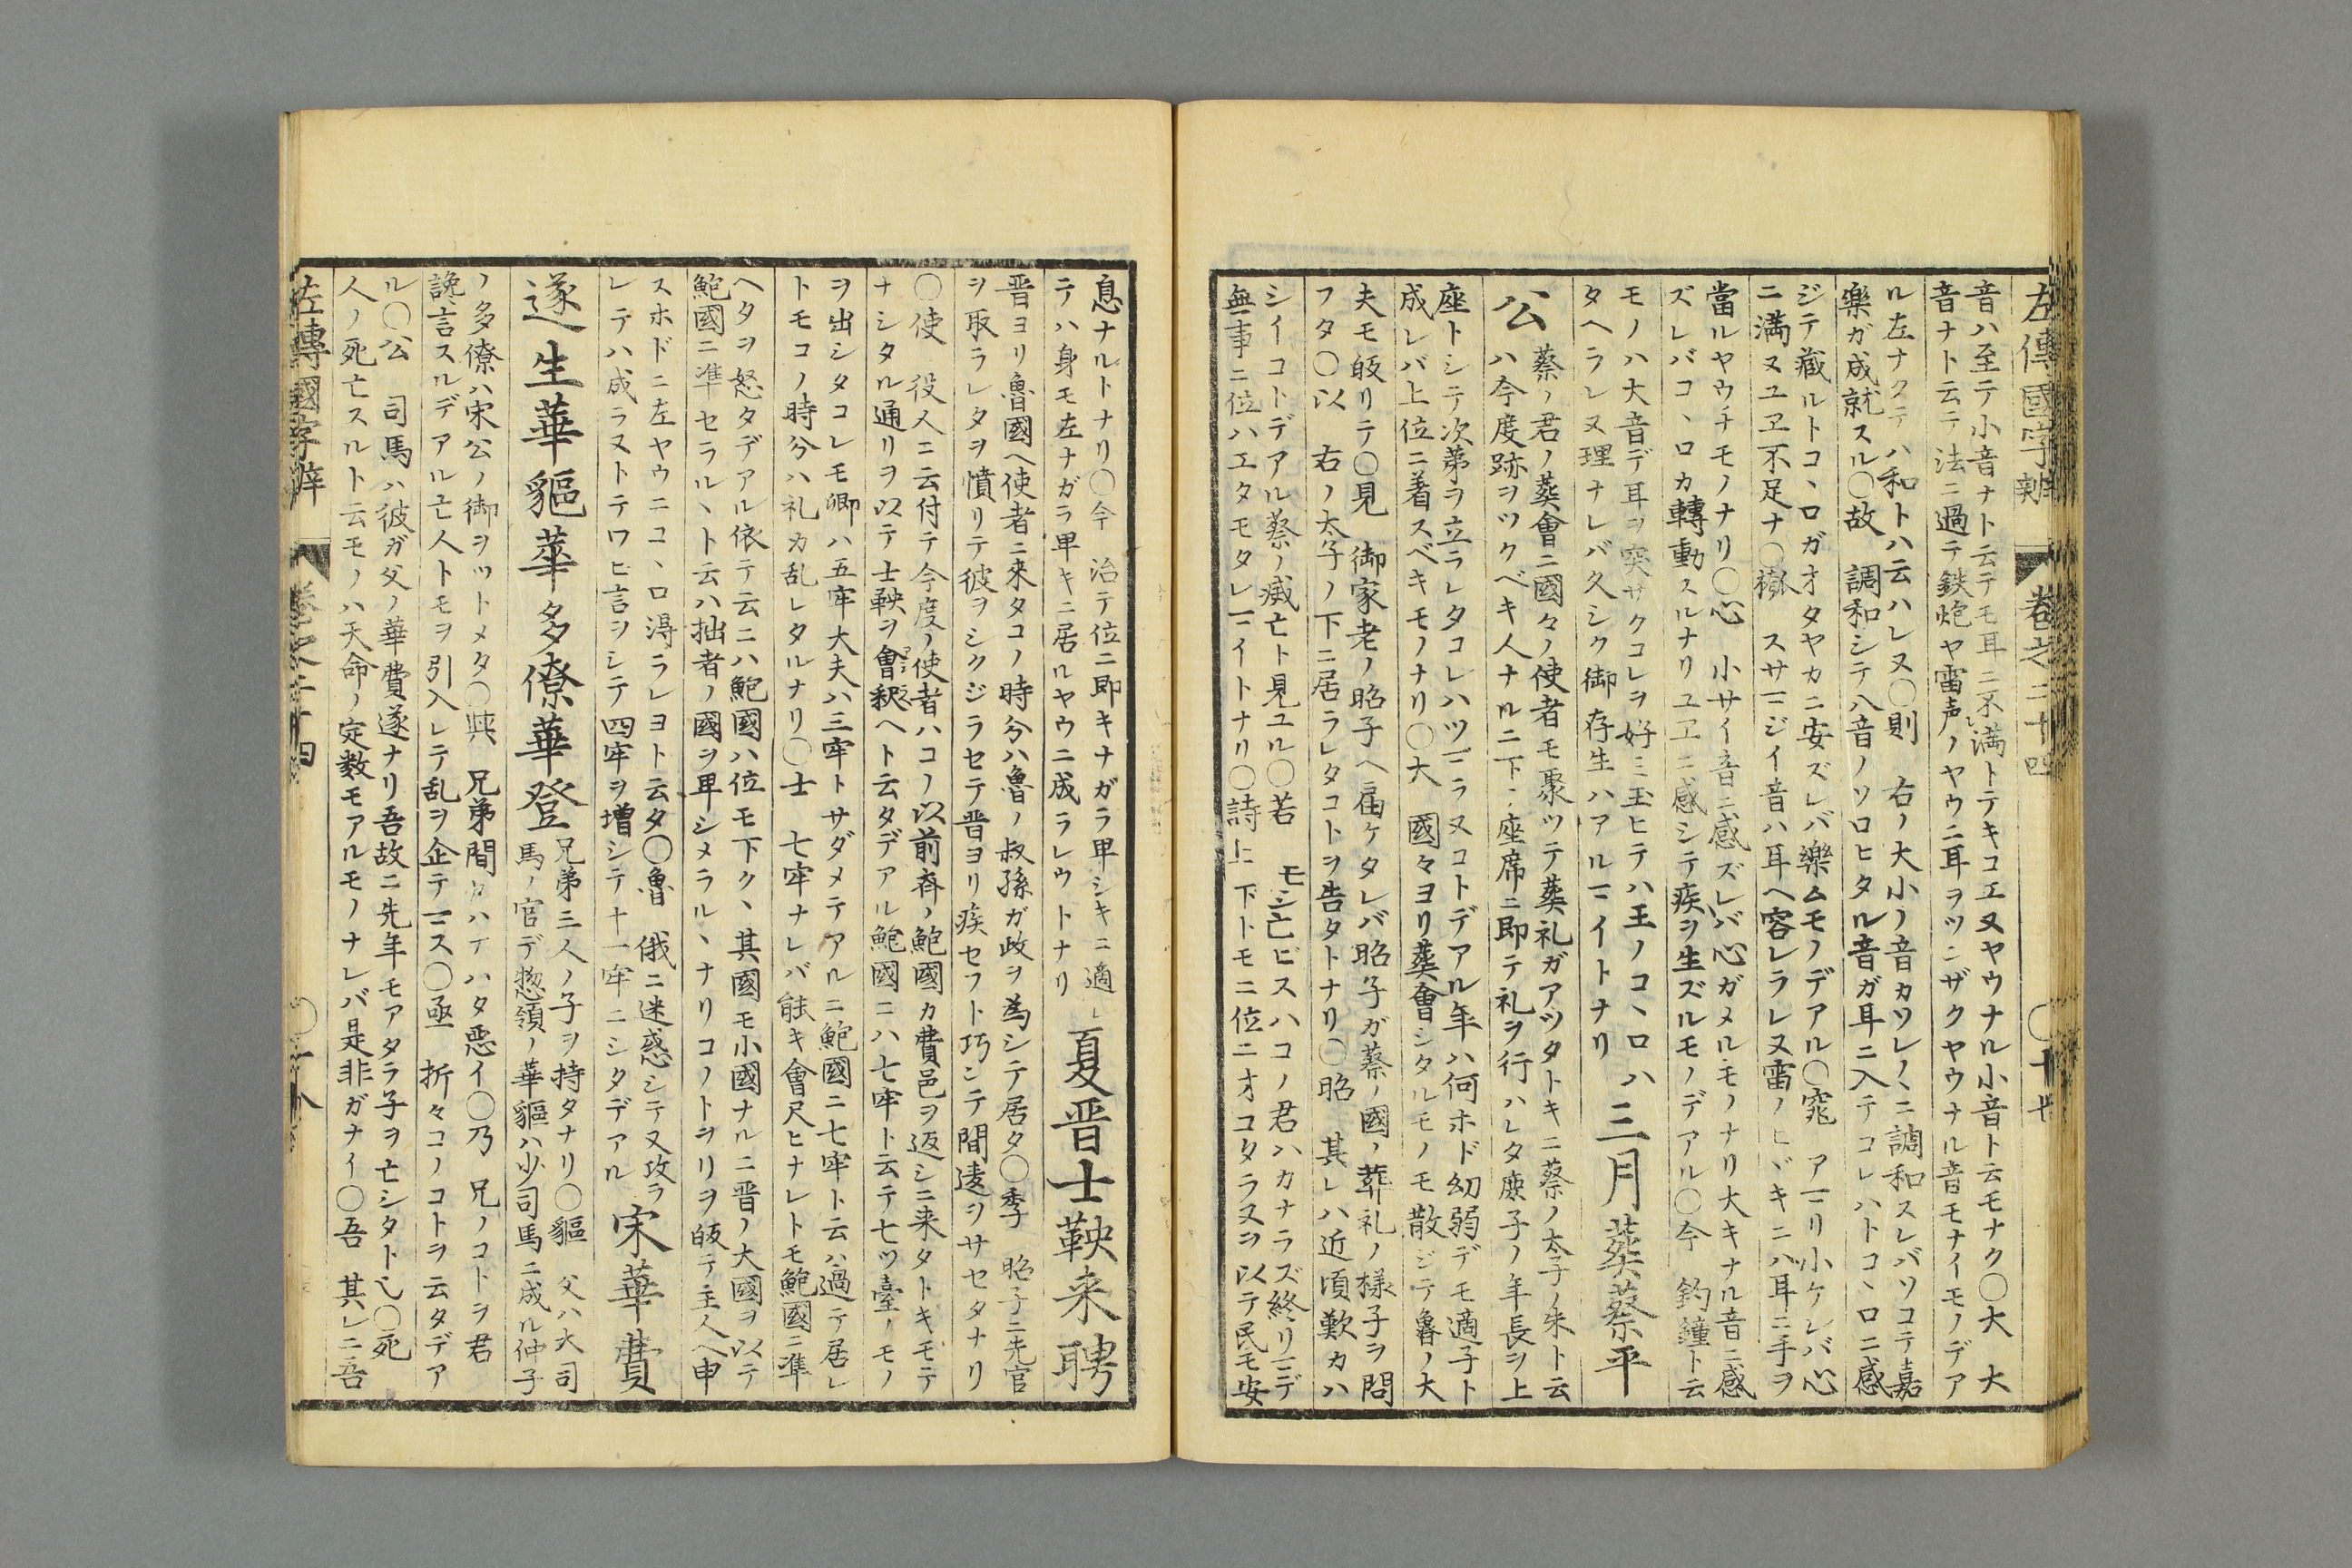 左傳國字辨 巻之二十四 〇十七
音ハ至テ小音ナト云テモ耳ニ不満トテキコエヌヤウナル小音ト云モナク〇大 大
音ナト云テ法ニ過テ鉄炮ヤ雷声ノヤウニ耳ヲツンザクヤウナル音モナイモノデア
ル左ナクテハ和トハ云ハレヌ〇則 右ノ大小ノ音カソレ〱ニ調和スレバソコテ嘉
樂ガ成就スル〇故 調和シテ八音ノソロヒタル音ガ耳ニ入テコレハトコヽロニ感
ジテ藏ルトコヽロガオタヤカニ安ズレバ樂ムモノデアル〇窕 アマリ小ケレバ心
ニ満ヌユヱ不足ナ〇槬 スサマジイ音ハ耳ヘ容レラレヌ雷ノヒヾキニハ耳ニ手ヲ
當ルヤウナモノナリ〇心 小サイ音ニ感ズレバ心ガメルモノナリ大キナル音ニ感
ズレバコヽロカ轉動スルナリユヱニ感シテ疾ヲ生ズルモノデアル〇今 釣鐘ト云
モノハ大音デ耳ヲ突サクコレヲ好ミ玉ヒテハ王ノコヽロハ 三月葬蔡平
タヘラレヌ理ナレバ久シク御存生ハアルマイトナリ
公 蔡ノ君ノ葬會ニ國々ノ使者モ聚ツテ葬礼ガアツタトキニ蔡ノ太子ノ朱ト云
ハ今度跡ヲツクベキ人ナルニ下ノ座席ニ即テ礼ヲ行ハレタ庶子ノ年長ヲ上
座トシテ次第ヲ立ラレタコレハツマラヌコトデアル年ハ何ホド幼弱デモ適子ト
成レバ上位ニ着スベキモノナリ〇大 國々ヨリ葬會シタルモノモ散ジテ魯ノ大
夫モ皈リテ〇見 御家老ノ昭子ヘ届ケタレバ昭子ガ蔡ノ國ノ葬礼ノ様子ヲ問
フタ〇以 右ノ太子ノ下ニ居ラレタコトヲ告タトナリ〇昭 其レハ近頃歎カハ
シイコトデアル蔡ノ滅亡ト見ユル〇若 モシ亡ビスハコノ君ハカナラズ終リマデ
無事ニ位ハエタモタレマイトナリ〇詩 上下トモニ位ニオコタラヌヲ以テ民モ安
息ナルトナリ〇今 治テ位ニ即キナガラ卑シキニ適
テハ身モ左ナガラ卑キニ居ルヤウニ成ラレウトナリ 夏晋士鞅来聘
晋ヨリ魯國ヘ使者ニ来タコノ時分ハ魯ノ叔孫ガ政ヲ為シテ居タ〇季 昭子ニ先官
ヲ取ラレタヲ憤リテ彼ヲシクジラセテ晋ヨリ疾セフト巧ンテ間違ヲサセタナリ
〇使 役人ニ云付テ今度ノ使者ハコノ以前斉ノ鮑國カ費邑ヲ返シニ来タトキモテ
ナシタル通リヲ以テ士鞅ヲ會釈ヘト云タデアル鮑國ニハ七牢ト云テ七ツ臺ノモノ
ヲ出シタコレモ卿ハ五牢大夫ハ三牢トサダメテアルニ鮑國ニ七牢ト云ハ過テ居レ
トモコノ時分ハ礼カ乱レタルナリ〇士 七牢ナレバ能キ會尺ヒナレトモ鮑國ニ準
ヘタヲ怒タデアル依テ云ニハ鮑國ハ位モ下ク、其國モ小國ナルニ晋ノ大國ヲ以テ
鮑國ニ準セラルヽト云ハ拙者ノ國ヲ卑シメラルヽナリコノトヲリヲ皈テ主人ヘ申
スホドニ左ヤウニコヽロ得ラレヨト云タ〇魯 俄ニ迷惑シテ又攻ラ
レテハ成ラヌトテワビ言ヲシテ四牢ヲ増シテ十一牢ニシタデアル 宋華費
遂生華貙華多僚華登 兄弟三人ノ子ヲ持タナリ〇貙 父ハ大司
馬ノ官デ惣領ノ華貙ハ少司馬ニ成ル仲子
ノ多僚ハ宋公ノ御ヲツトメタ〇與 兄弟間タハナハタ悪イ〇乃 兄ノコトヲ君
讒言スルデアル亡人トモヲ引入レテ乱ヲ企テマス〇亟 折々コノコトヲ云タデア
ル〇公 司馬ハ彼ガ父ノ華費遂ナリ吾故ニ先年モアタラ子ヲ亡シタト也〇死
人ノ死亡スルト云モノハ天命ノ定数モアルモノナレバ是非ガナイ〇吾 其レニ吾
左傳國字辨 巻之二十四 〇十八